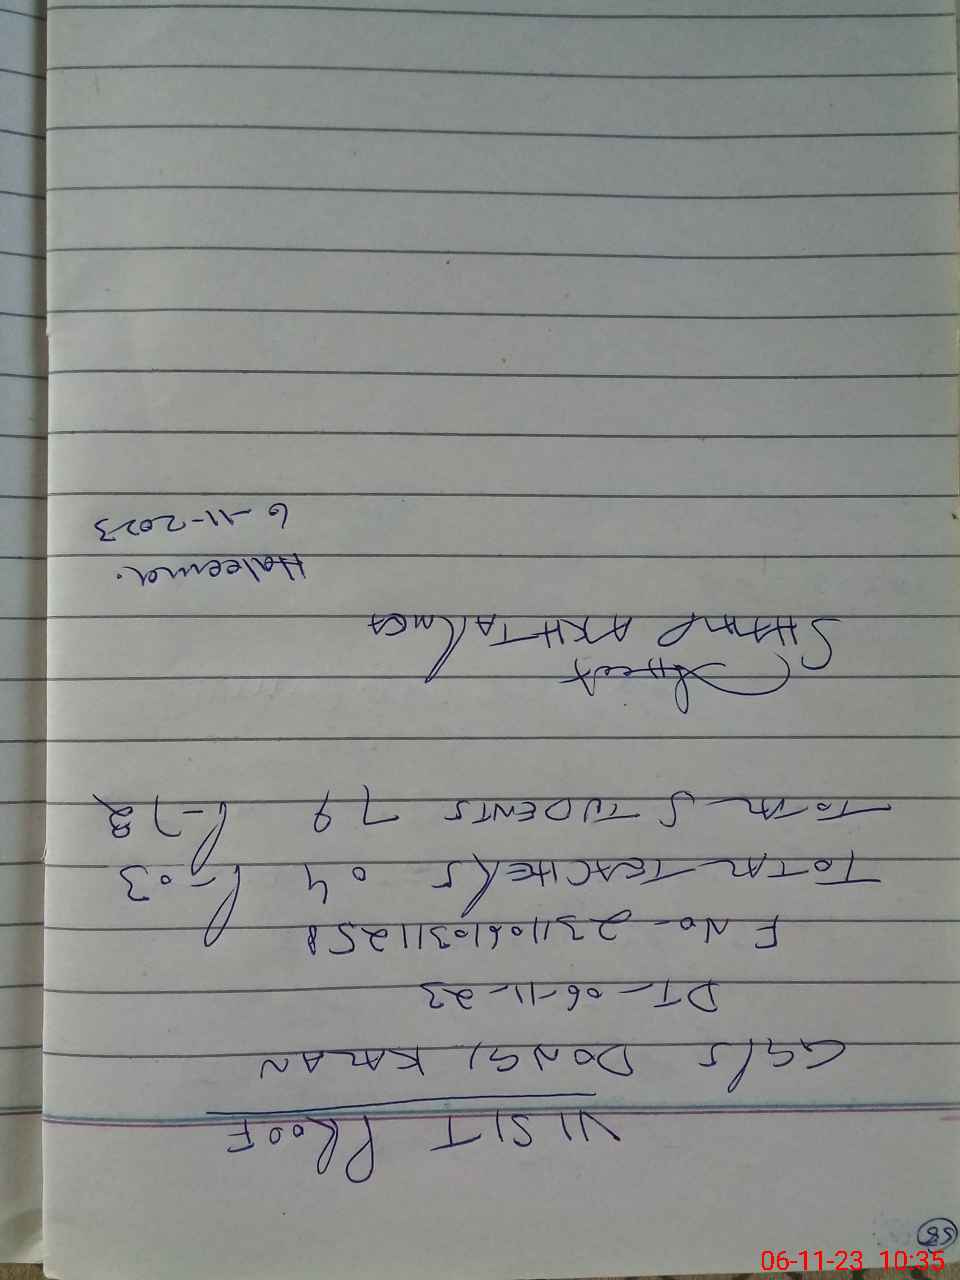 58
VISIT PROOF
GGPS DONGI KALAN
DT- 06-11-23
F No- 23110610311258
TOTAL TEACHERS 04 P-03
TOTAL STUDENTS 79 P-72
SHAMA AKHTAR MEA
Haleema.
6-11-2023
06-11-23 10:35